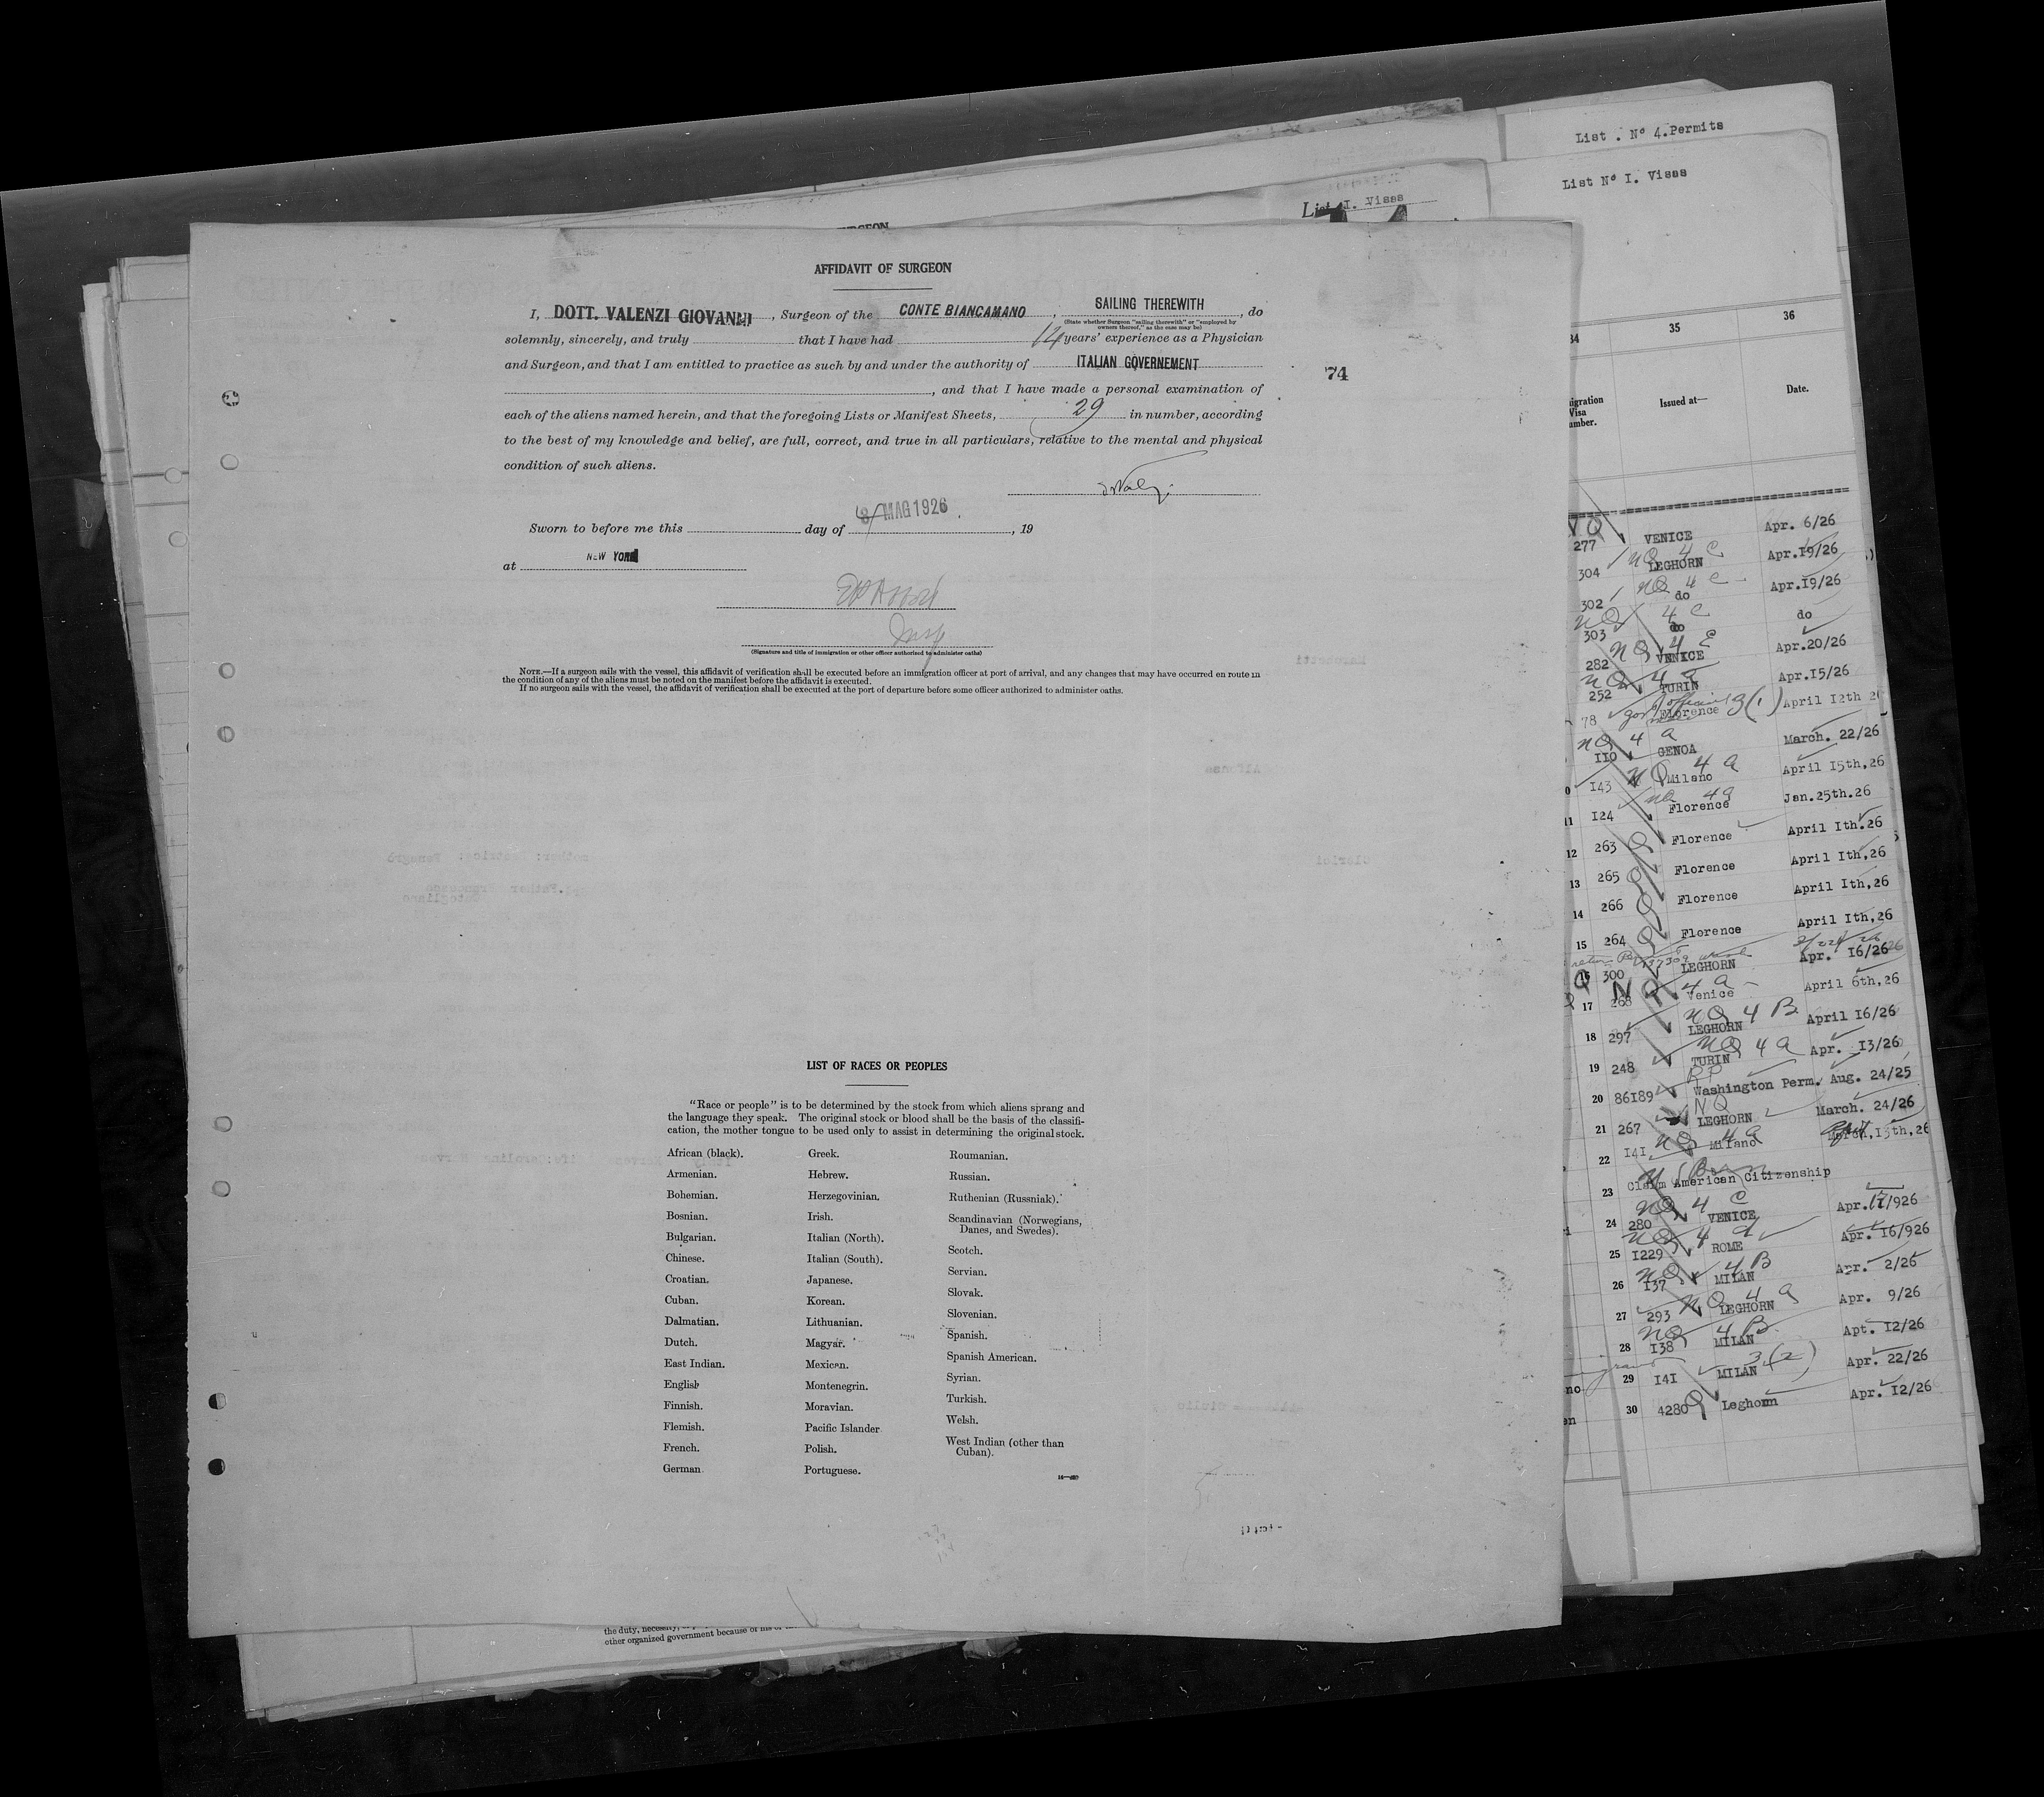 List . Nº 4.Permits
List Nº I. Visas
List I. Visas
AFFIDAVIT OF SURGEON
I, DOTT. VALENZI GIOVANNI , Surgeon of the CONTE BIANCAMANO , SAILING THEREWITH , do
(State whether Surgeon "sailing therewith" or "employed by
owners thereof," as the case may be)
solemnly, sincerely, and truly that I have had 14 years' experience as a Physician
and Surgeon, and that I am entitled to practice as such by and under the authority of ITALIAN GOVERNEMENT
74
, and that I have made a personal examination of
each of the aliens named herein, and that the foregoing Lists or Manifest Sheets, 29 in number, according
to the best of my knowledge and belief, are full, correct, and true in all particulars, relative to the mental and physical
condition of such aliens.
Sworn to before me this day of 8 MAG 1926 , 19
at NEW YORK
Insp
(Signature and title of immigration or other officer authorized to administer oaths)
NOTE.—If a surgeon sails with the vessel, this affidavit of verification shall be executed before an immigration officer at port of arrival, and any changes that may have occurred en route in
the condition of any of the aliens must be noted on the manifest before the affidavit is executed.
If no surgeon sails with the vessel, the affidavit of verification shall be executed at the port of departure before some officer authorized to administer oaths.
LIST OF RACES OR PEOPLES
"Race or people" is to be determined by the stock from which aliens sprang and
the language they speak. The original stock or blood shall be the basis of the classifi-
cation, the mother tongue to be used only to assist in determining the original stock.
African (black).
Armenian.
Bohemian.
Bosnian.
Bulgarian.
Chinese.
Croatian.
Cuban.
Dalmatian.
Dutch.
East Indian.
English
Finnish.
Flemish.
French.
German.
Greek.
Hebrew.
Herzegovinian.
Irish.
Italian (North).
Italian (South).
Japanese.
Korean.
Lithuanian.
Magyar.
Mexican.
Montenegrin.
Moravian.
Pacific Islander
Polish.
Portuguese.
Roumanian.
Russian.
Ruthenian (Russniak).
Scandinavian (Norwegians,
Danes, and Swedes).
Scotch.
Servian.
Slovak.
Slovenian.
Spanish.
Spanish American.
Syrian.
Turkish.
Welsh.
West Indian (other than
Cuban).
the duty, necessity,
other organized government because of his or
34 35 36
Visa Issued at— Date.
277 NQ VENICE Apr. 6/26
304 NQ 4 C LEGHORN Apr.I9/26
302 NQ 4 C do Apr.I9/26
303 NQ 4 C do do
282 NQ 4 E VENICE Apr.20/26
252 NQ 4 a TURIN Apr.I5/26
78 Florence 3(1) April I2th 26
II0 NQ 4 a GENOA March. 22/26
I43 NQ 4 a Milano April I5th,26
11 I24 NQ 4a Florence Jan.25th.26
12 263 Q Florence April Ith.26
13 265 Q Florence April Ith,26
14 266 Q Florence April Ith,26
15 264 Q Florence April Ith,26
16 300 LEGHORN Apr. I6/26
17 268 NQ 4 a Venice April 6th,26
18 297 NQ 4 B LEGHORN April I6/26
19 248 NQ 4 a TURIN Apr. I3/26
20 86I89 RP Washington Perm. Aug. 24/25
21 267 NQ LEGHORN March. 24/26
22 I4I NQ 4 a Milano April,I3th,26
23 Claim American Citizenship
24 280 NQ 4 C VENICE Apr.I7/926
25 I229 NQ 4 a ROME Apr. I6/926
26 I37 NQ 4 B MILAN Apr. 2/26
27 293 NQ 4 a LEGHORN Apr. 9/26
28 I38 NQ 4 B MILAN Apt. I2/26
29 I4I MILAN 3(2) Apr. 22/26
30 4280 Q Leghorn Apr. I2/26